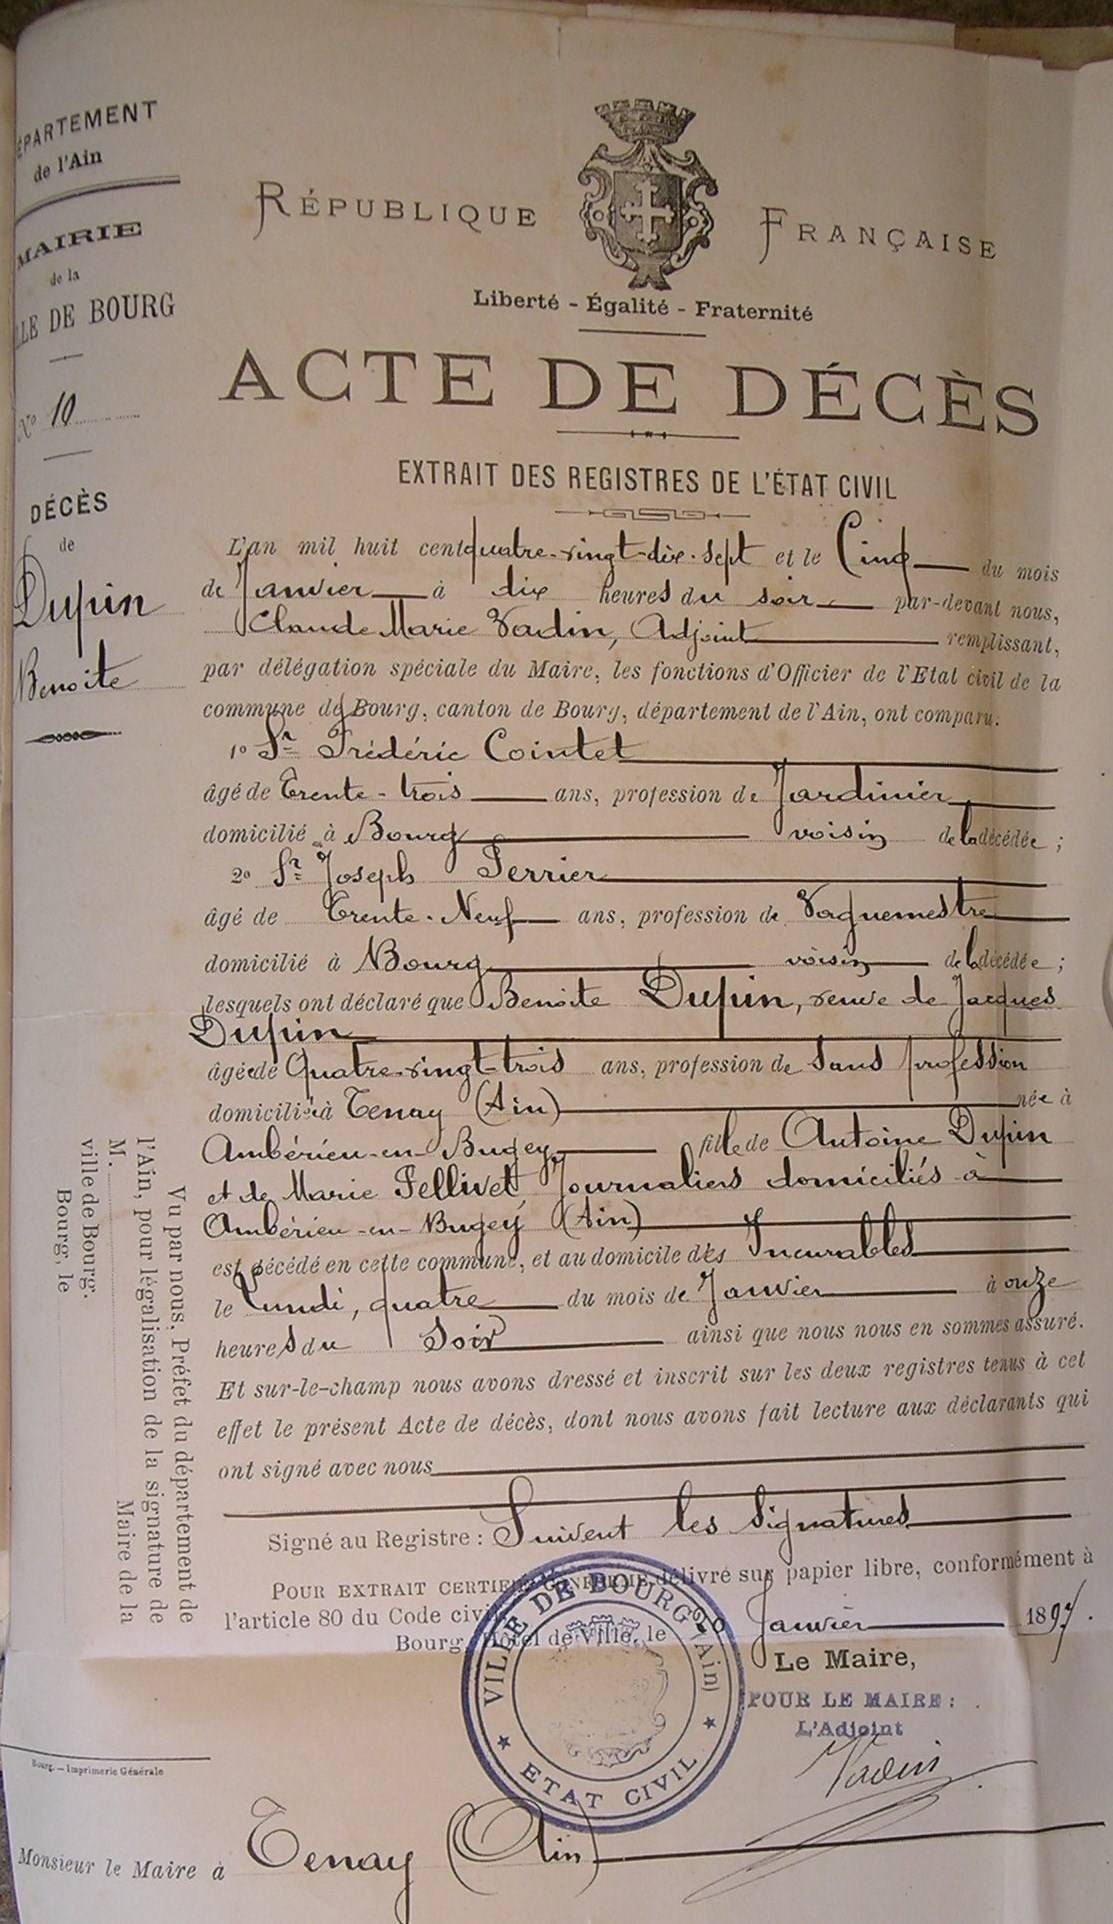 ÉPARTEMENT
de l'Ain
MAIRIE
de la
LLE DE BOURG
No 10
DÉCÈS
de
Dupin
Benoite
RÉPUBLIQUE FRANÇAISE
Liberté - Égalité - Fraternité
ACTE DE DÉCÈS
EXTRAIT DES REGISTRES DE L'ÉTAT CIVIL
L'an mil huit cent quatre-vingt-dix-sept et le Cinq du mois
de Janvier à dix heures du soir par-devant nous,
Claude Marie Vadin, Adjoint remplissant,
par délégation spéciale du Maire, les fonctions d'Officier de l'Etat civil de la
commune de Bourg, canton de Bourg, département de l'Ain, ont comparu.
1o Sr Frédéric Cointet
âgé de Trente-trois ans, profession de Jardinier
domicilié à Bourg voisin de la décédée ;
2o Sr Joseph Perrier
âgé de Trente-Neuf ans, profession de Vaguemestre
domicilié à Bourg voisin de la décédée ;
lesquels ont déclaré que Benoite Dupin, veuve de Jacques
Dupin
âgée de Quatre-vingt-trois ans, profession de sans profession
domiciliée à Tenay (Ain) née à
Ambérieu-en-Bugey fille de Antoine Dupin
et de Marie Pellivet Journaliers domiciliés à
Ambérieu-en-Bugey (Ain)
est décédé en cette commune, et au domicile des Incurables
le Lundi, quatre du mois de Janvier à onze
heures du Soir ainsi que nous nous en sommes assuré.
Et sur-le-champ nous avons dressé et inscrit sur les deux registres tenus à cet
effet le présent Acte de décès, dont nous avons fait lecture aux déclarants qui
ont signé avec nous
Signé au Registre : Suivent les signatures
POUR EXTRAIT CERTIFIÉ CONFORME délivré sur papier libre, conformément à
l'article 80 du Code civil
Bourg, Hôtel de Ville, le 20 Janvier 1897.
Le Maire,
POUR LE MAIRE :
L'Adjoint
Vadin
VILLE DE BOURG (Ain)
ETAT CIVIL
Vu par nous, Préfet du département de
l'Ain, pour légalisation de la signature de
M. Maire de la
ville de Bourg.
Bourg, le
Bourg. — Imprimerie Générale
Monsieur le Maire à Tenay (Ain)